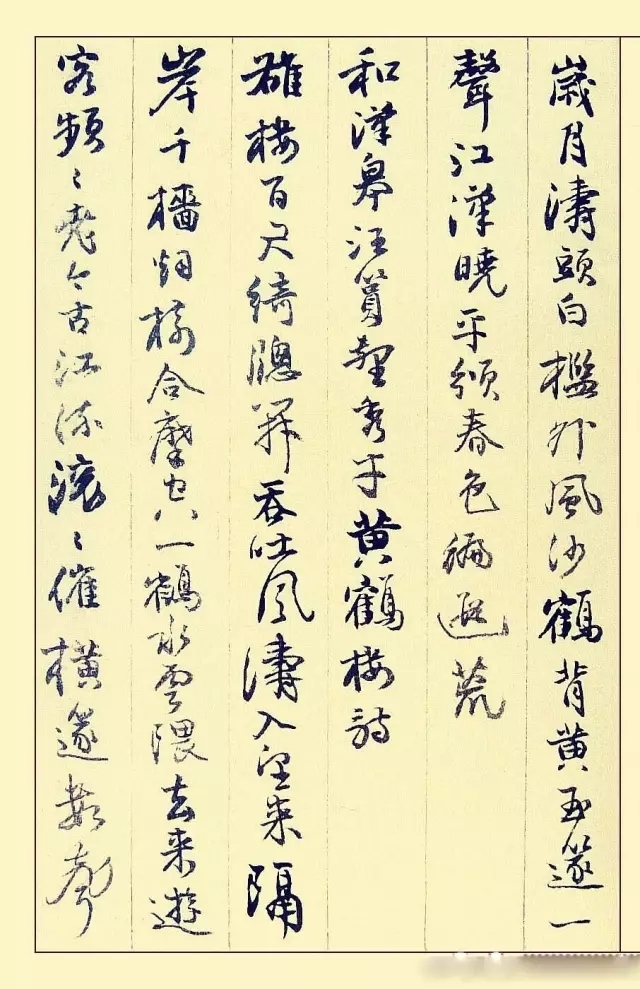 歲月濤頭白檻外風沙鶴背黃玉篴一
聲江漢曉平頒春色徧遐荒
和漢皋汪篔秀才黃鶴樓詩
雄樓百尺綺牕開吞吐風濤入望來隔
岸千檣烟樹合摩空一鶴水雲隈去來遊
客頻〻老今古江流滾〻催橫篴數聲